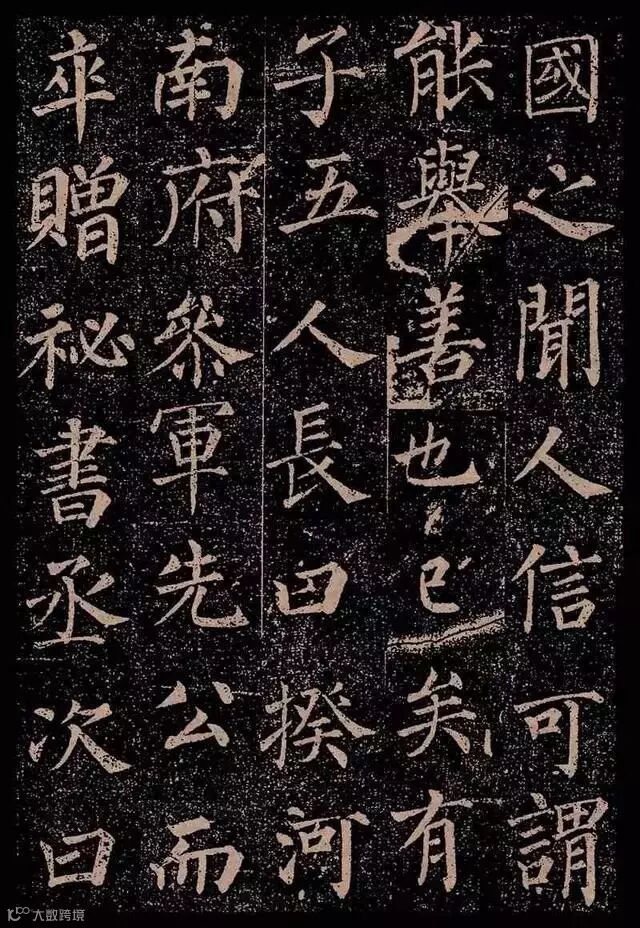 國之聞人信可謂
能舉善也已矣有
子五人長曰揆河
南府叅軍先公而
卒贈祕書丞次曰
大数跨境